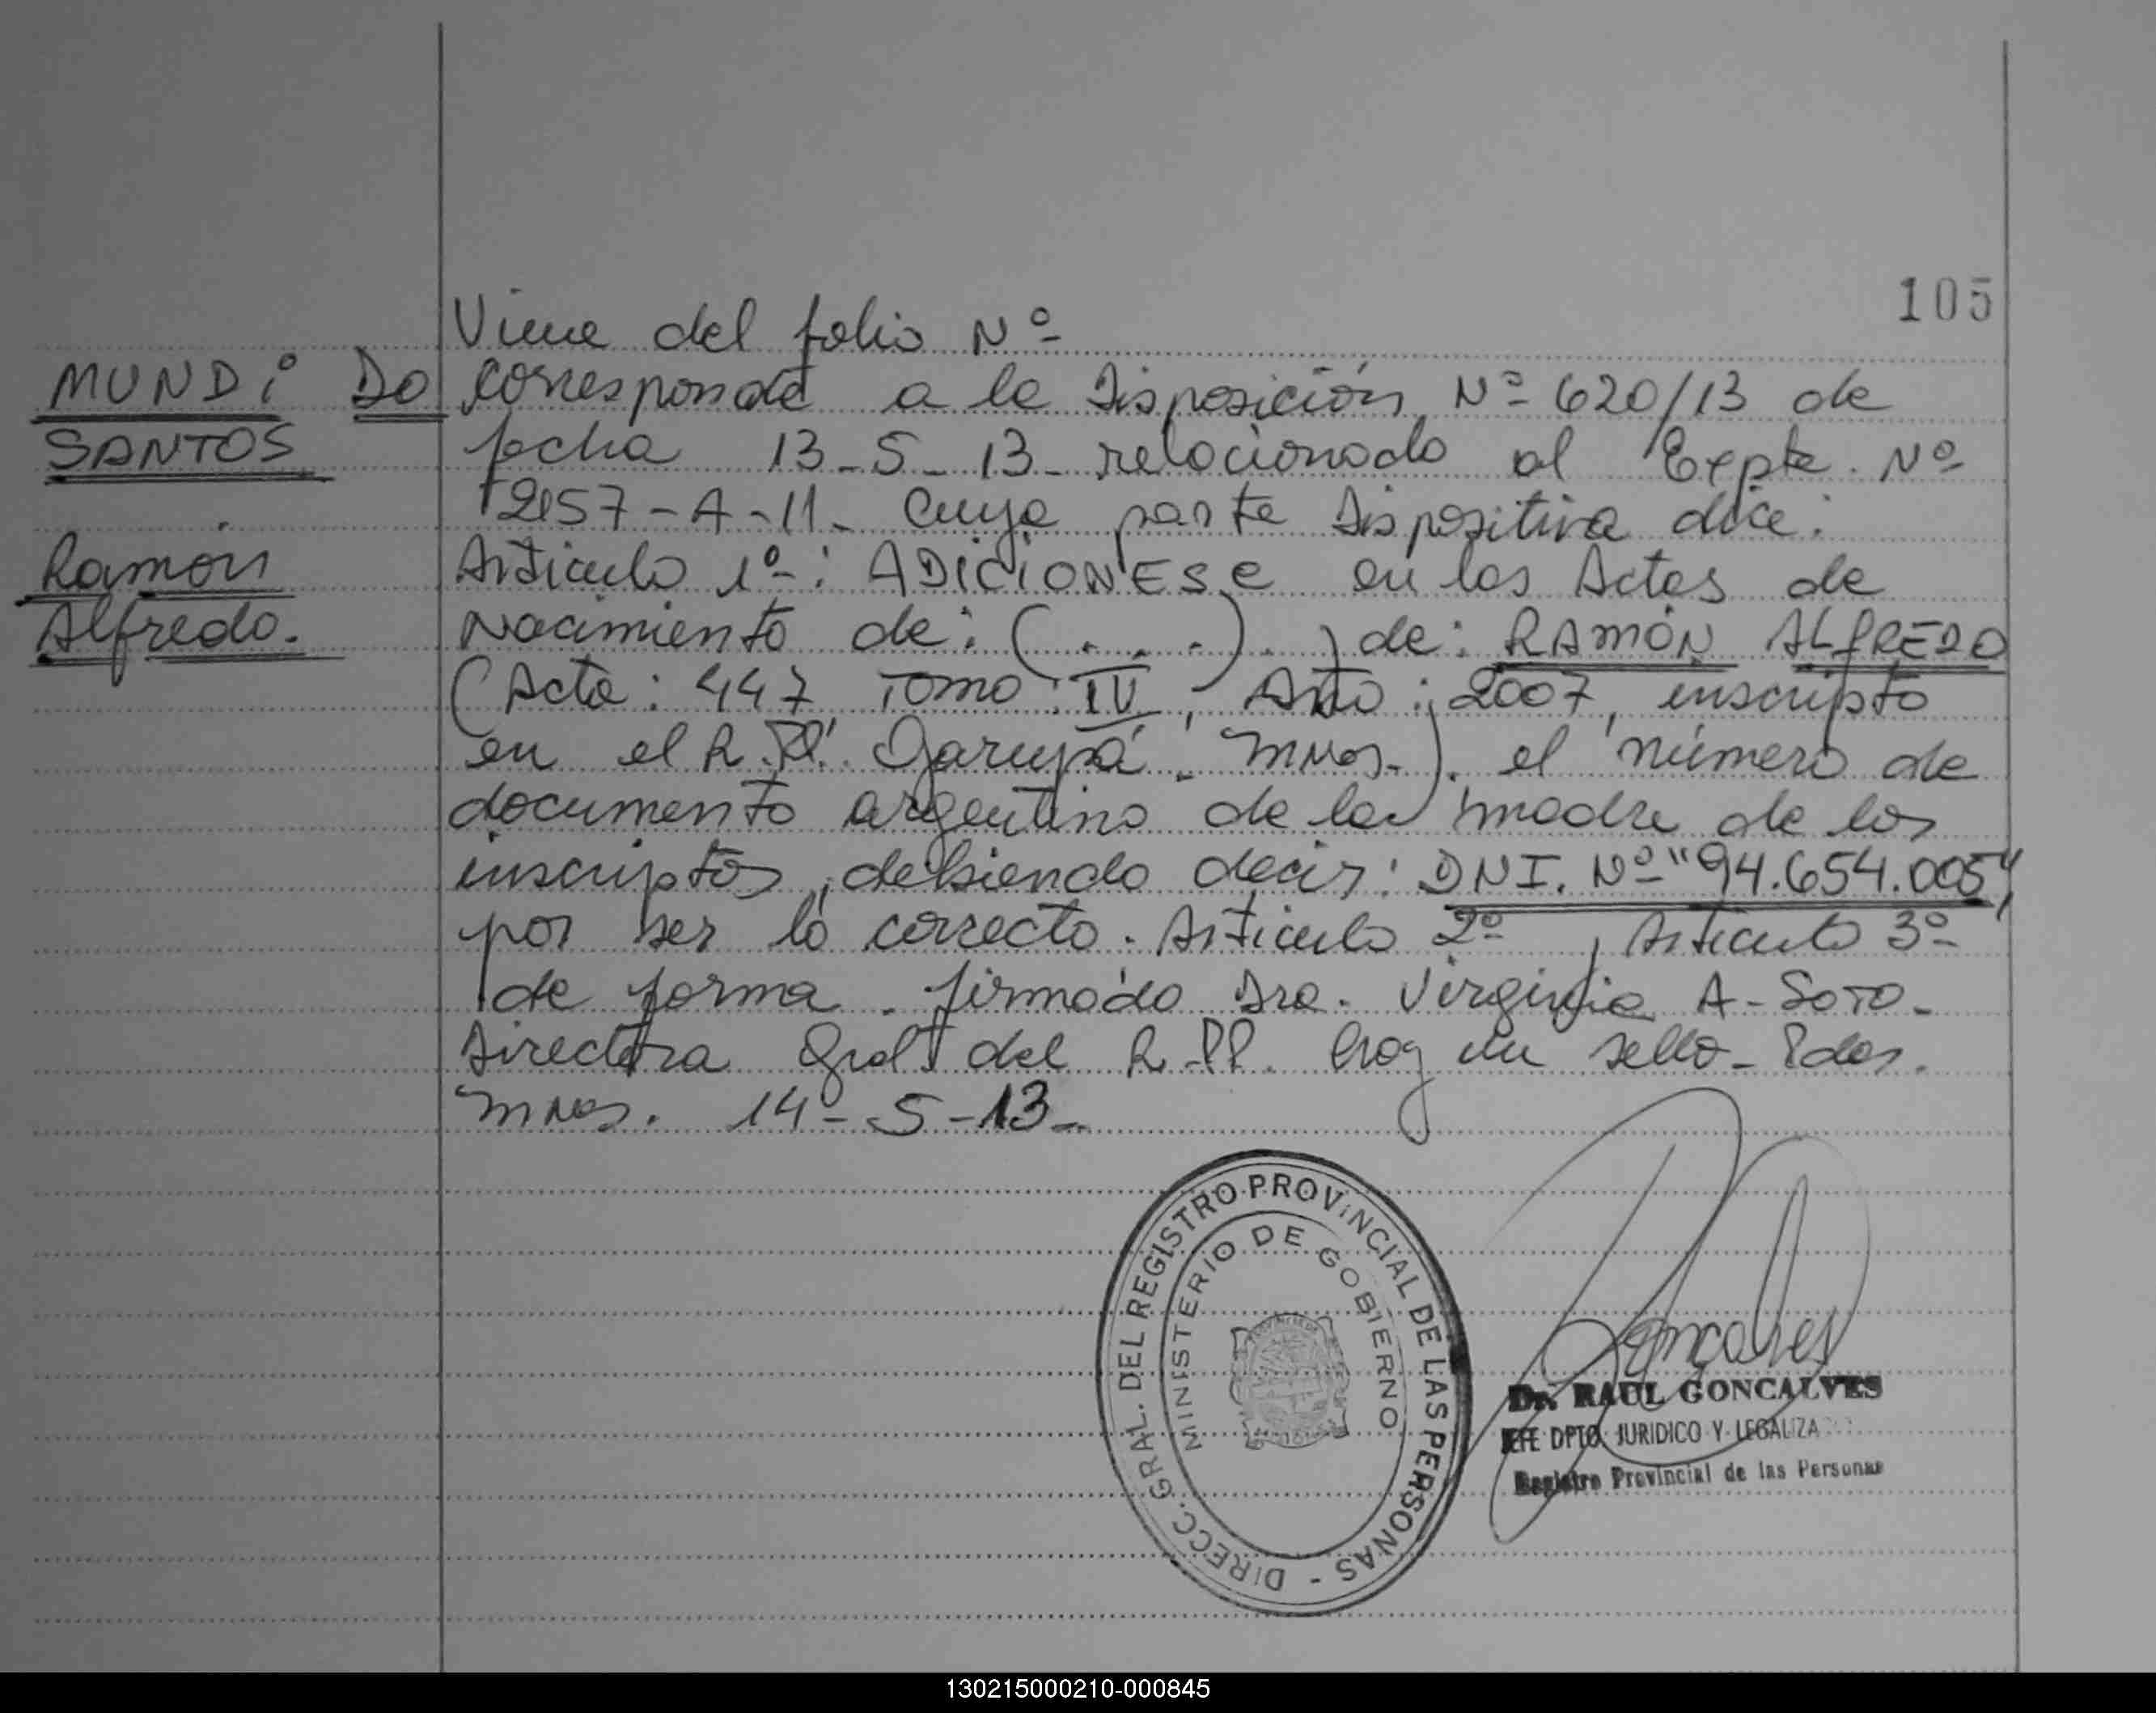 105
Viene del folio Nº
MUNDI DO
SANTOS
Ramón
Alfredo.
Corresponde a la Disposición Nº 620/13 de
fecha 13-5-13- relacionado al Expte. Nº
2157-A-11- Cuya parte Dispositiva dice:
Articulo 1º: ADICIONESE en las Actas de
Nacimiento de: (. . . .) . , de: RAMÓN ALFREDO
(Acta: 447 Tomo: IV, Año: 2007, inscripto
en el R.P. Garupá - Mnes.). el número de
documento argentino de la madre de los
inscriptos, debiendo decir: DNI. Nº "94.654.005",
por ser lo correcto. Articulo 2º, Articulo 3º-
de forma. firmado Dra. Virginia A- Soto-
Directora Gral del R.PP. Hay un sello- Pdas.
Mnes. 14-5-13-
DIRECC. GRAL. DEL REGISTRO PROVINCIAL DE LAS PERSONAS -
MINISTERIO DE GOBIERNO
Goncalves
Dr. RAUL GONCALVES
JEFE DPTO JURIDICO Y LEGALIZA
Registro Provincial de las Personas
130215000210-000845